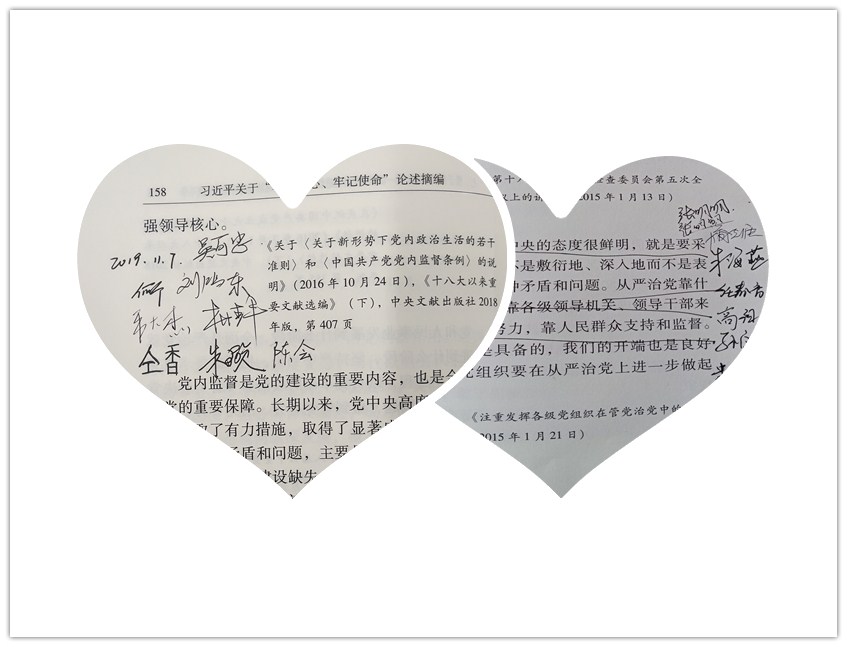 158 习近平关于“ 心、牢记使命”论述摘编
强领导核心。
《关于〈关于新形势下党内政治生活的若干
准则〉和〈中国共产党党内监督条例〉的说
明》(2016年10月24日),《十八大以来重
要文献选编》(下),中央文献出版社2018
年版,第407页
2019.11.7.
刘鸣东
仝香 朱璇 陈会
党内监督是党的建设的重要内容,也是全
党的重要保障。长期以来,党中央高度
取了有力措施,取得了显著
矛盾和问题,主要
建设缺失
第十八 查委员会第五次全
议上的讲 2015年1月13日)
中央的态度很鲜明,就是要采
不是敷衍地、深入地而不是表
种矛盾和问题。从严治党靠什
靠各级领导机关、领导干部来
努力,靠人民群众支持和监督。
是具备的,我们的开端也是良好
党组织要在从严治党上进一步做起
《注重发挥各级党组织在管党治党中的
2015年1月21日)
张明明
张明明
朱海燕
任春香